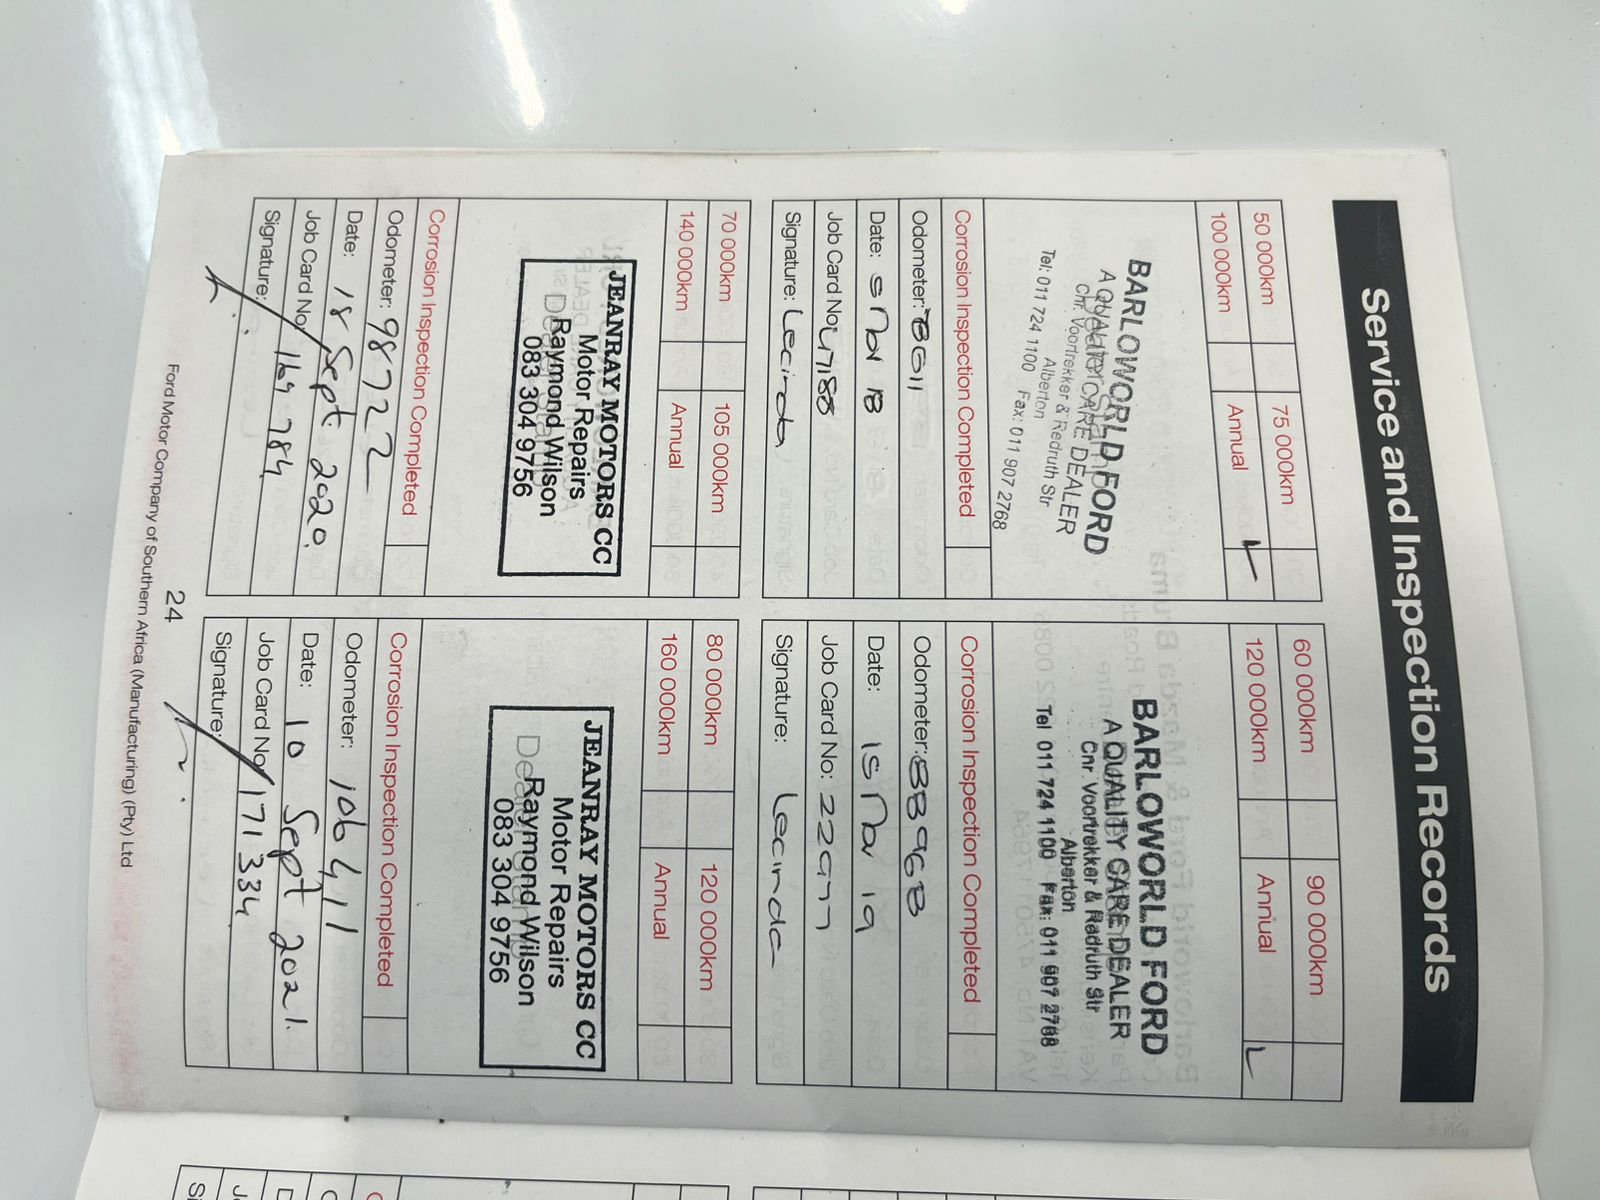 Service and Inspection Records
50 000km 75 000km
100 000km Annual
BARLOWORLD FORD
A QUALITY CARE DEALER
Cnr. Voortrekker & Redruth Str
Alberton
Tel: 011 724 1100 Fax: 011 907 2768
Corrosion Inspection Completed
Odometer: 78611
Date: 5 Nov 18
Job Card No: 47188
Signature: Lecinda
60 000km 90 000km
120 000km Annual
BARLOWORLD FORD
A QUALITY CARE DEALER
Cnr Voortrekker & Redruth Str
Alberton
Tel 011 724 1100 Fax: 011 907 2768
Corrosion Inspection Completed
Odometer: 88968
Date: 15 Nov 19
Job Card No: 22977
Signature: Lecinda
70 000km 105 000km
140 000km Annual
JEANRAY MOTORS CC
Motor Repairs
Raymond Wilson
083 304 9756
Corrosion Inspection Completed
Odometer: 98722
Date: 18 Sept 2020.
Job Card No: 169784
Signature:
80 000km 120 000km
160 000km Annual
JEANRAY MOTORS CC
Motor Repairs
Raymond Wilson
083 304 9756
Corrosion Inspection Completed
Odometer: 106411
Date: 10 Sept 2021.
Job Card No: 171334
Signature:
24
Ford Motor Company of Southern Africa (Manufacturing) (Pty) Ltd